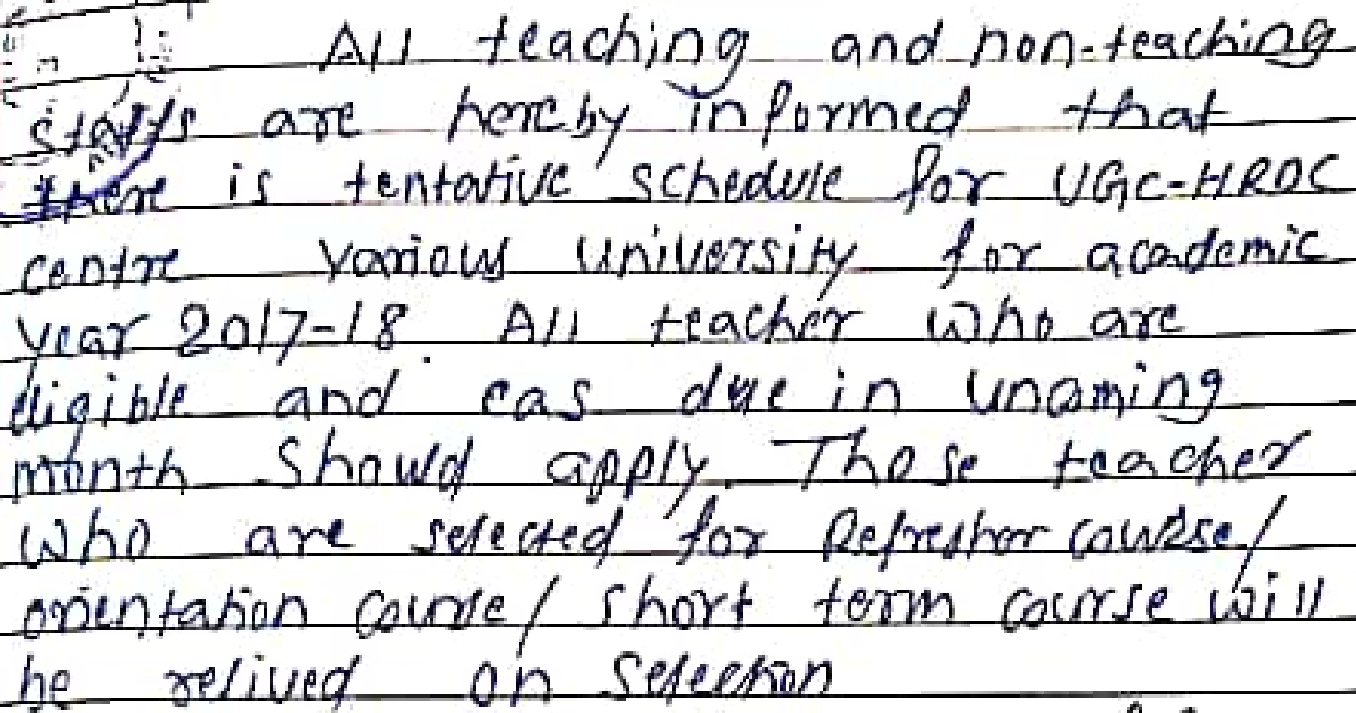 All teaching and non-teaching
staffs are hereby informed that
there is tentative schedule for UGC-HRDC
centre various university for academic
year 2017-18. All teacher who are
eligible and cas due in
month should apply. Those teacher
who are selected for Refresher course/
orientation course/ short term course will
be relived on selection